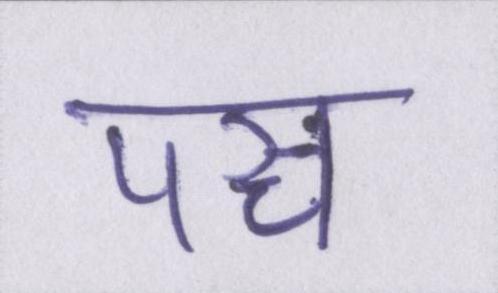 पक्ष